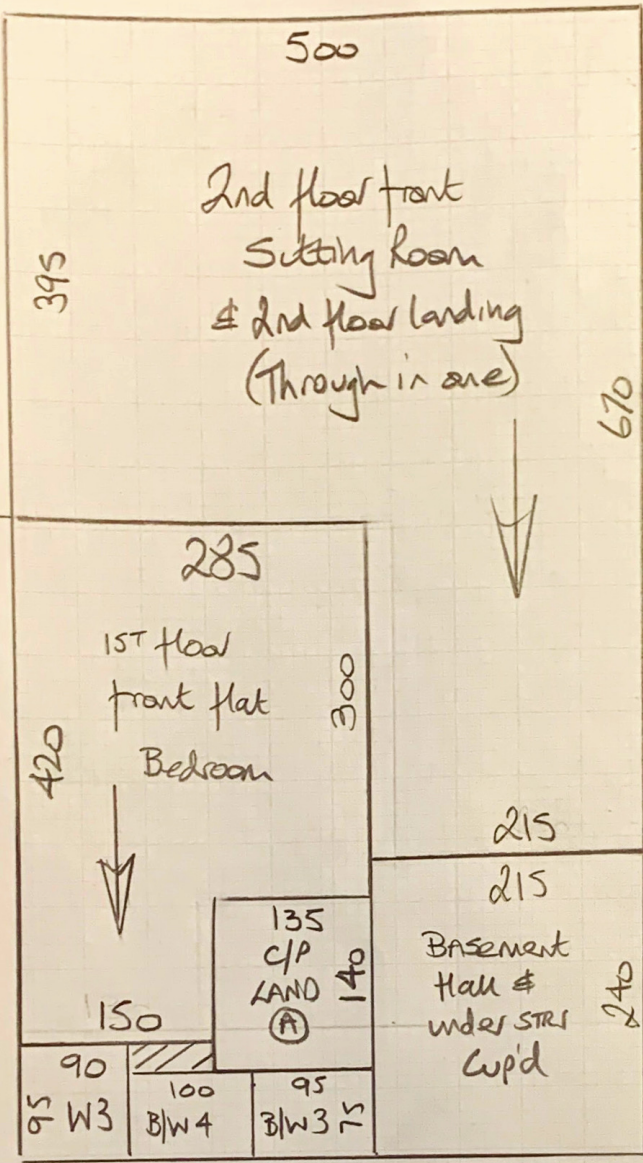 500
2nd floor front
Sitting Room
& 2nd floor landing
(Through in one)
395
670
285
1ST floor
front flat
Bedroom
300
420
215
215
135
C/P
LAND
A
140
Basement
Hall &
under STRS
Cup'd
240
150
90
95 W3
100
B/W4
95
B/W3 75